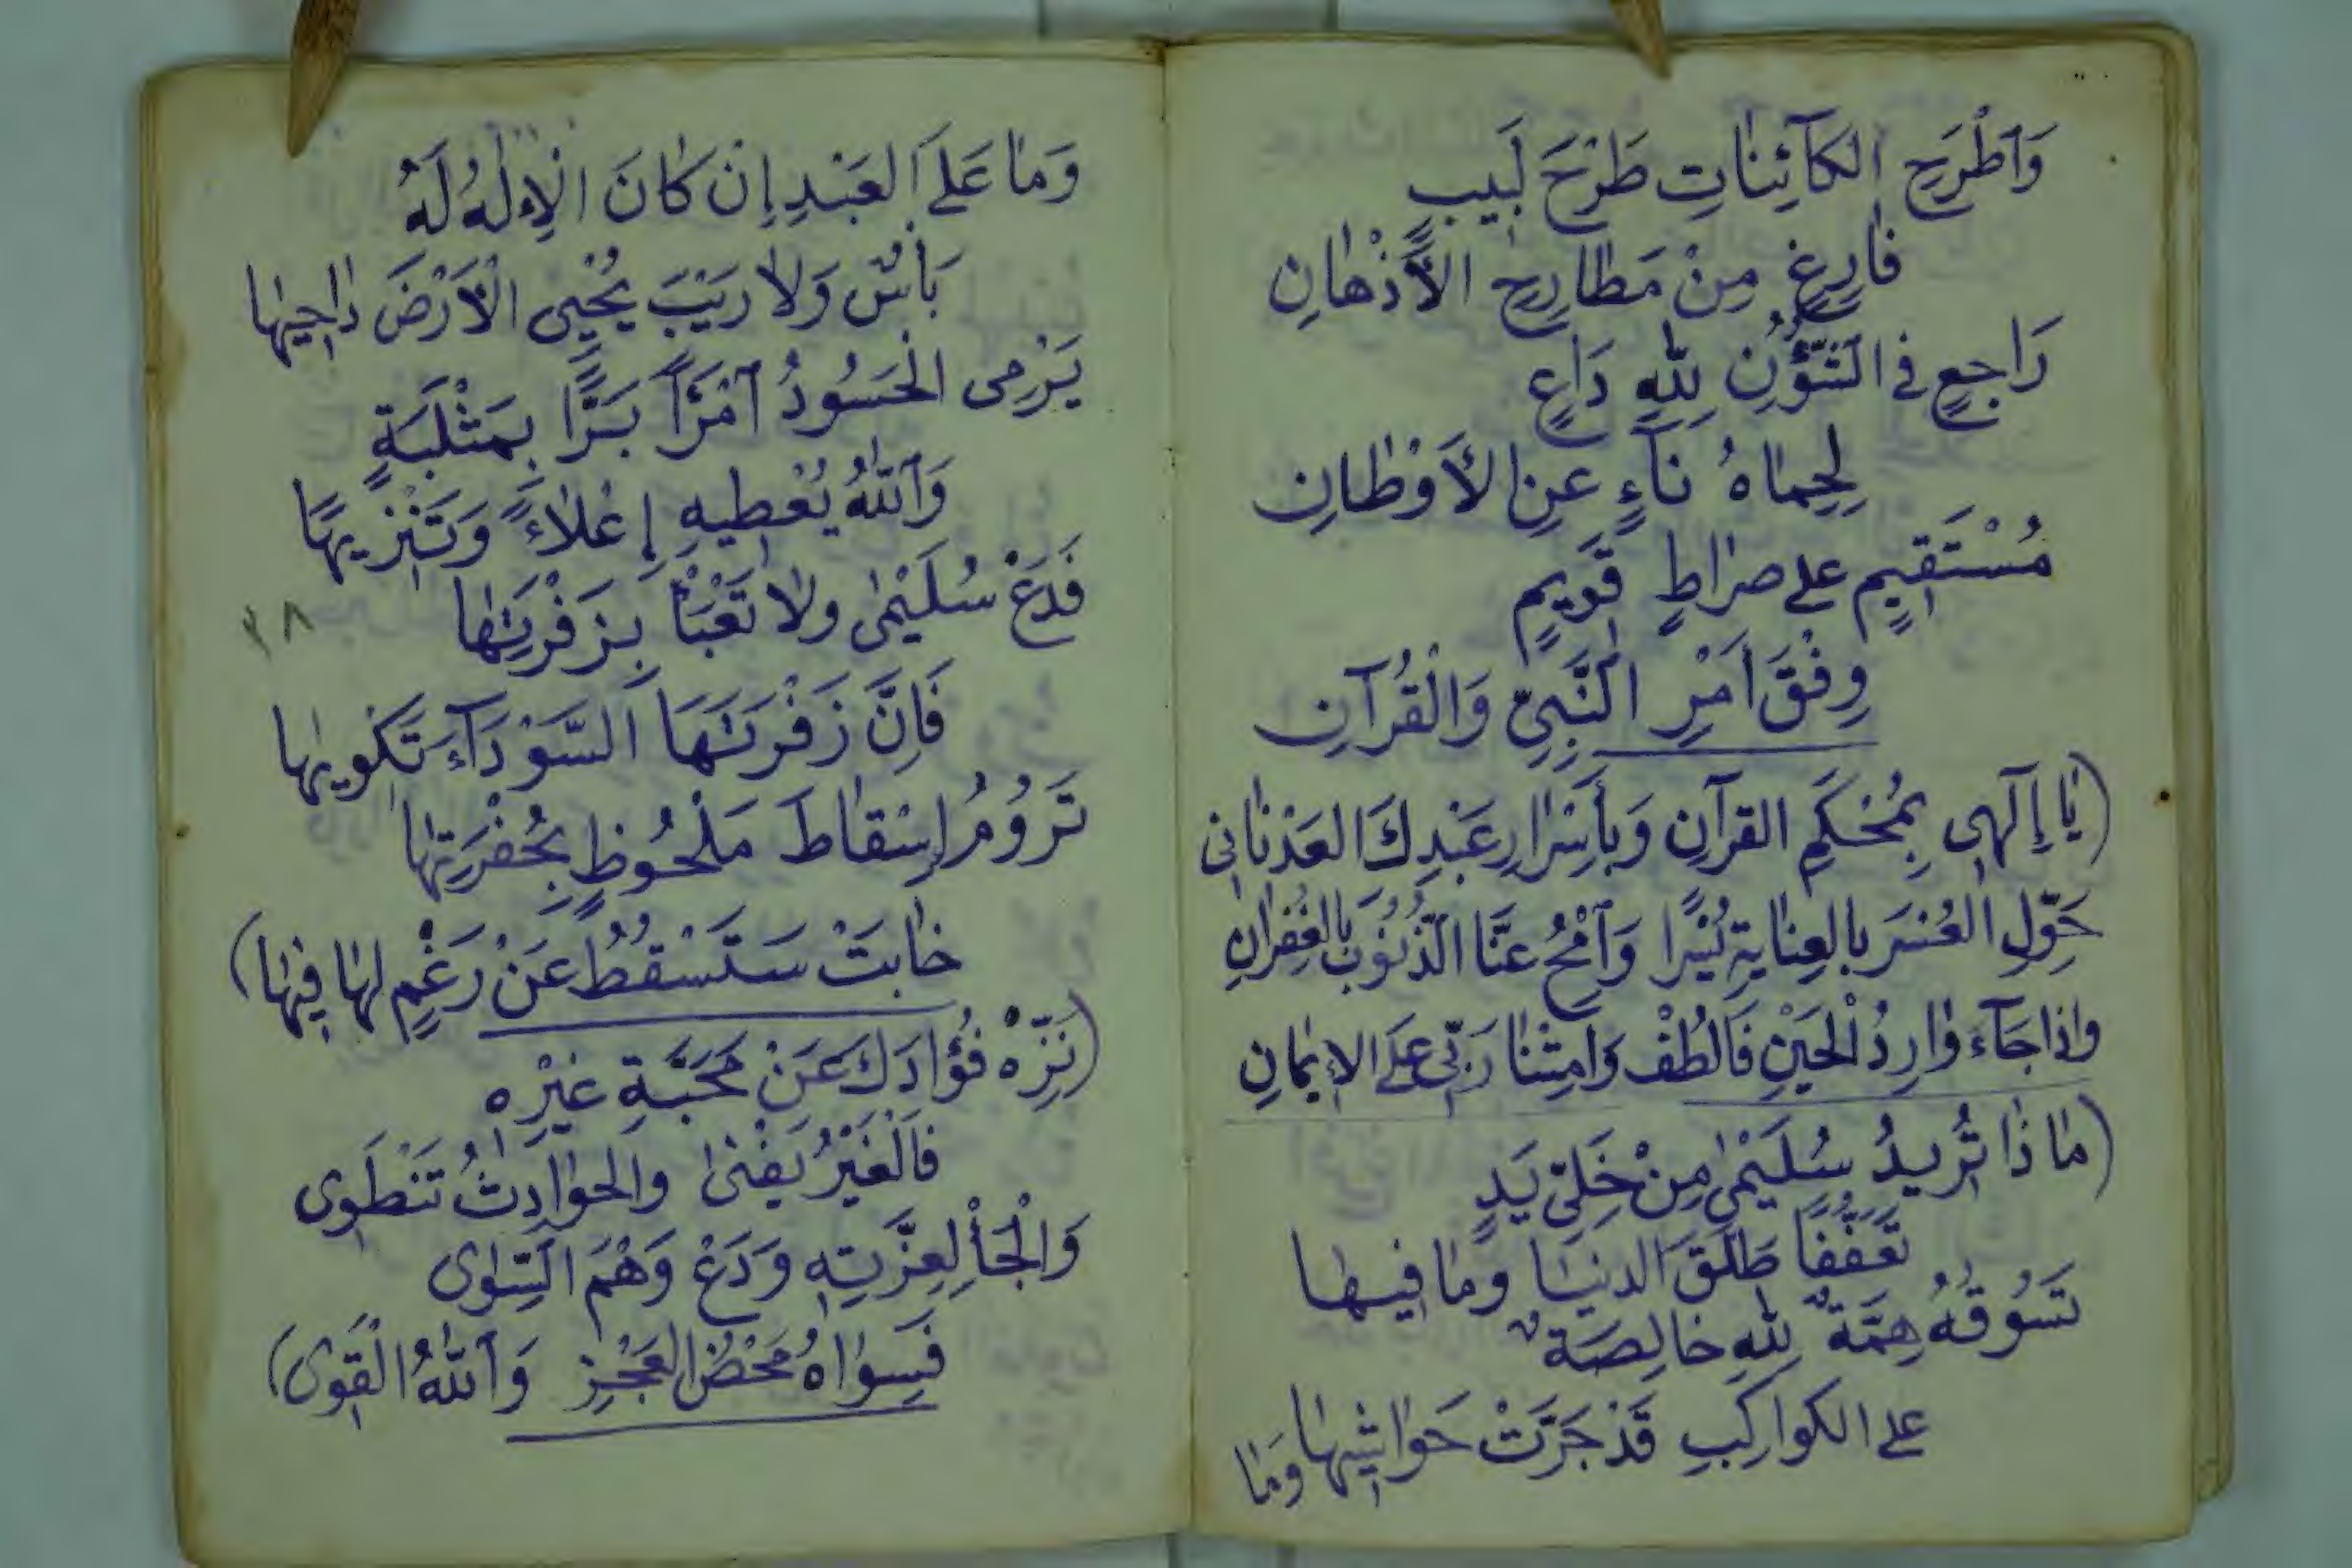 وَٱطْرَحِ الكَآئِنٰاتِ طَرْحَ لَبِيبٍ
فٰارِغٍ مِنْ مَطٰارِحِ الأَذْهٰانِ
رَاجِعٍ فِي الشُّؤُنِ لِلّٰهِ دَاعٍ
لِحِمٰاهُ نَآءٍ عَنِ الأَوْطٰانِ
مُسْتَقِيمٍ على صرٰاطٍ قَوِيمٍ
وِفْقَ اَمْرِ النَّبِيِّ وَالْقُرْآنِ
(يٰا إِلٰهِى بِمُحْكَمِ القرآنِ وَبِأَسْرٰارِ عَبْدِكَ العَدْنٰانِى
حَوِّلِ العُسْرَ بالعِنٰايةِ يُسْرًا وَٱمْحُ عَنَّا الذُّنُوبَ بِالغُفرٰانِ
وٱذا جَآءَ وٰارِدُ الْحَيْنِ فَالْطُفْ وَامِتْنٰا رَبِّى عَلَى الإيمٰانِ
(مٰا ذٰا تُرِيدُ سُلَيْمٰى مِنْ خَلِىِّ يَدٍ
تَعَفُّفًا طَلَّقَ الدنيٰا ومٰا فِيهٰا
تَسُوقُهُ هِمَّةٌ لِلّٰهِ خٰالِصَةٌ
على الكواكِبِ قَدْ جَرَّتْ حَوٰاشِيهٰا
وَمٰا
وَمٰا عَلَى العَبْدِ إِنْ كٰانَ الْإِلٰهُ لَهُ
بَأْسٌ وَلٰا رَيْبَ يُحْيِى الْأَرْضَ دٰاحِيهٰا
يَرْمِى الْحَسُودُ ٱمْرَأً بَرًّا بِمَثْلَبَةٍ
وَٱللّٰهُ يُعْطِيهِ إِعْلٰاءً وَتَنْزِيهًا
فَدَعْ سُلَيْمٰى ولٰا تَعْبَأْ بِزَفْرَتِهٰا
فَاِنَّ زَفْرَتَهَا السَّوْدَآءَ تَكْوِيهٰا
تَرُومُ إِسْقٰاطَ مَلْحُوظٍ بِحُفْرَتِهٰا
خٰابَتْ سَتَسْقُطُ عَنْ رَغْمٍ لهٰا فِيهٰا)
١٨
(نَزِّهْ فُؤٰادَكَ عَنْ مَحَبَّةِ غَيْرِه
فَالْغَيْرُ يَفْنٰى والحوٰادِثُ تَنْطَوِى
وَالْجَأْ لِعِزَّتِهِ وَدَعْ وَهْمَ السِّوٰى
فَسِوٰاهُ مَحْضُ العَجْزِ وَٱللّٰهُ الْقَوِى)